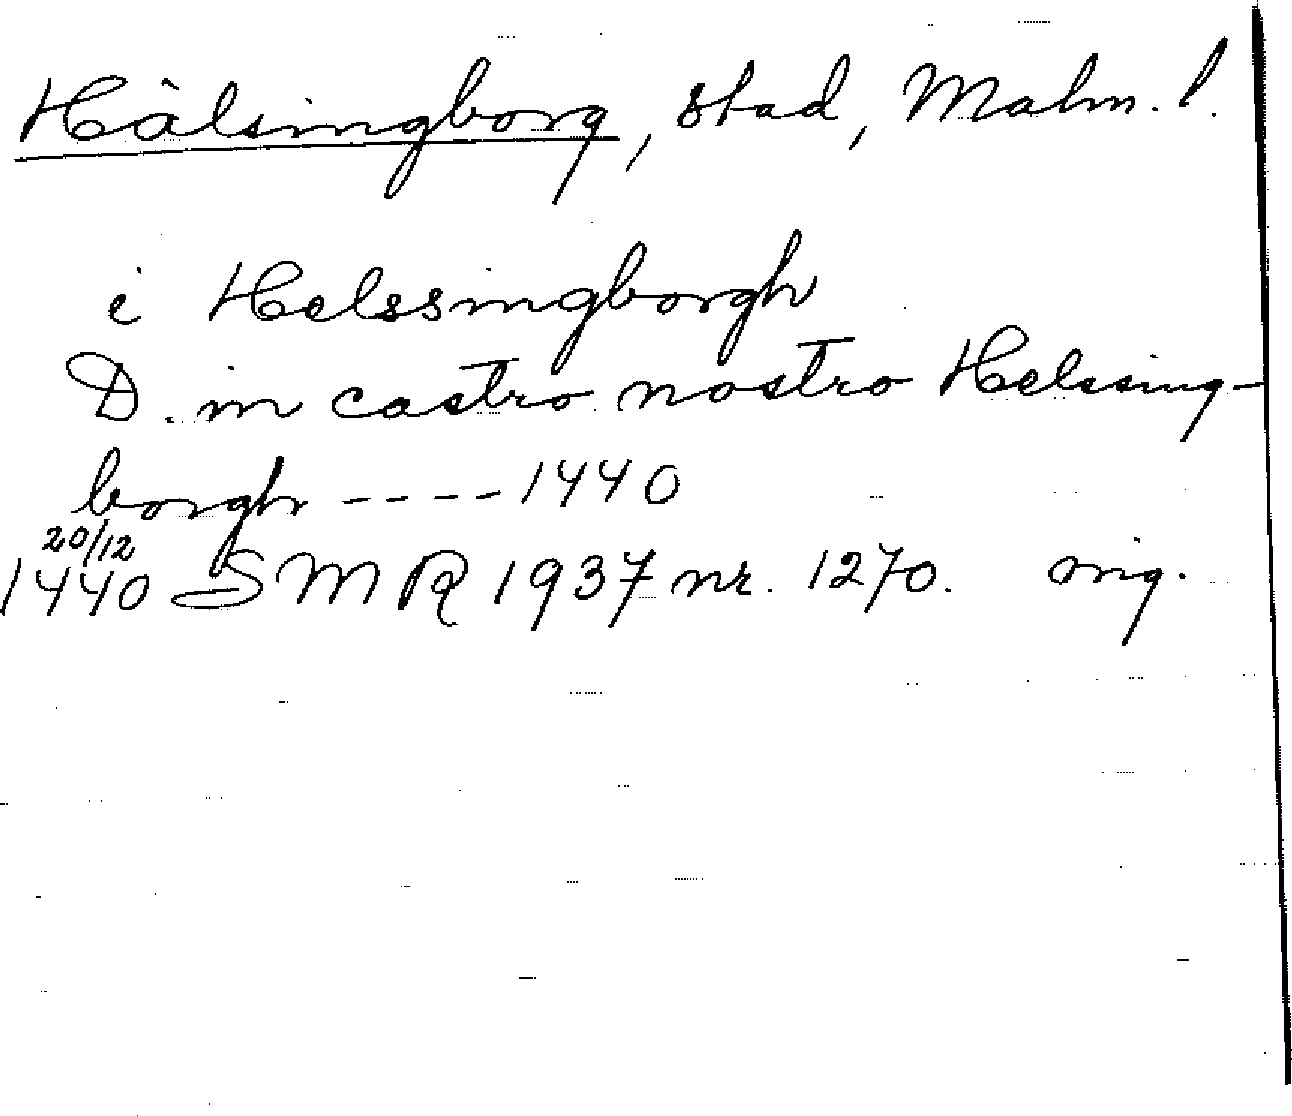 Hälsingborg, stad, Malm. l.
i Helssingborgh
D. in castro nostro Helssing-
borgh ---- 1440
20/12
1440 SMR 1937 nr. 1270. orig.